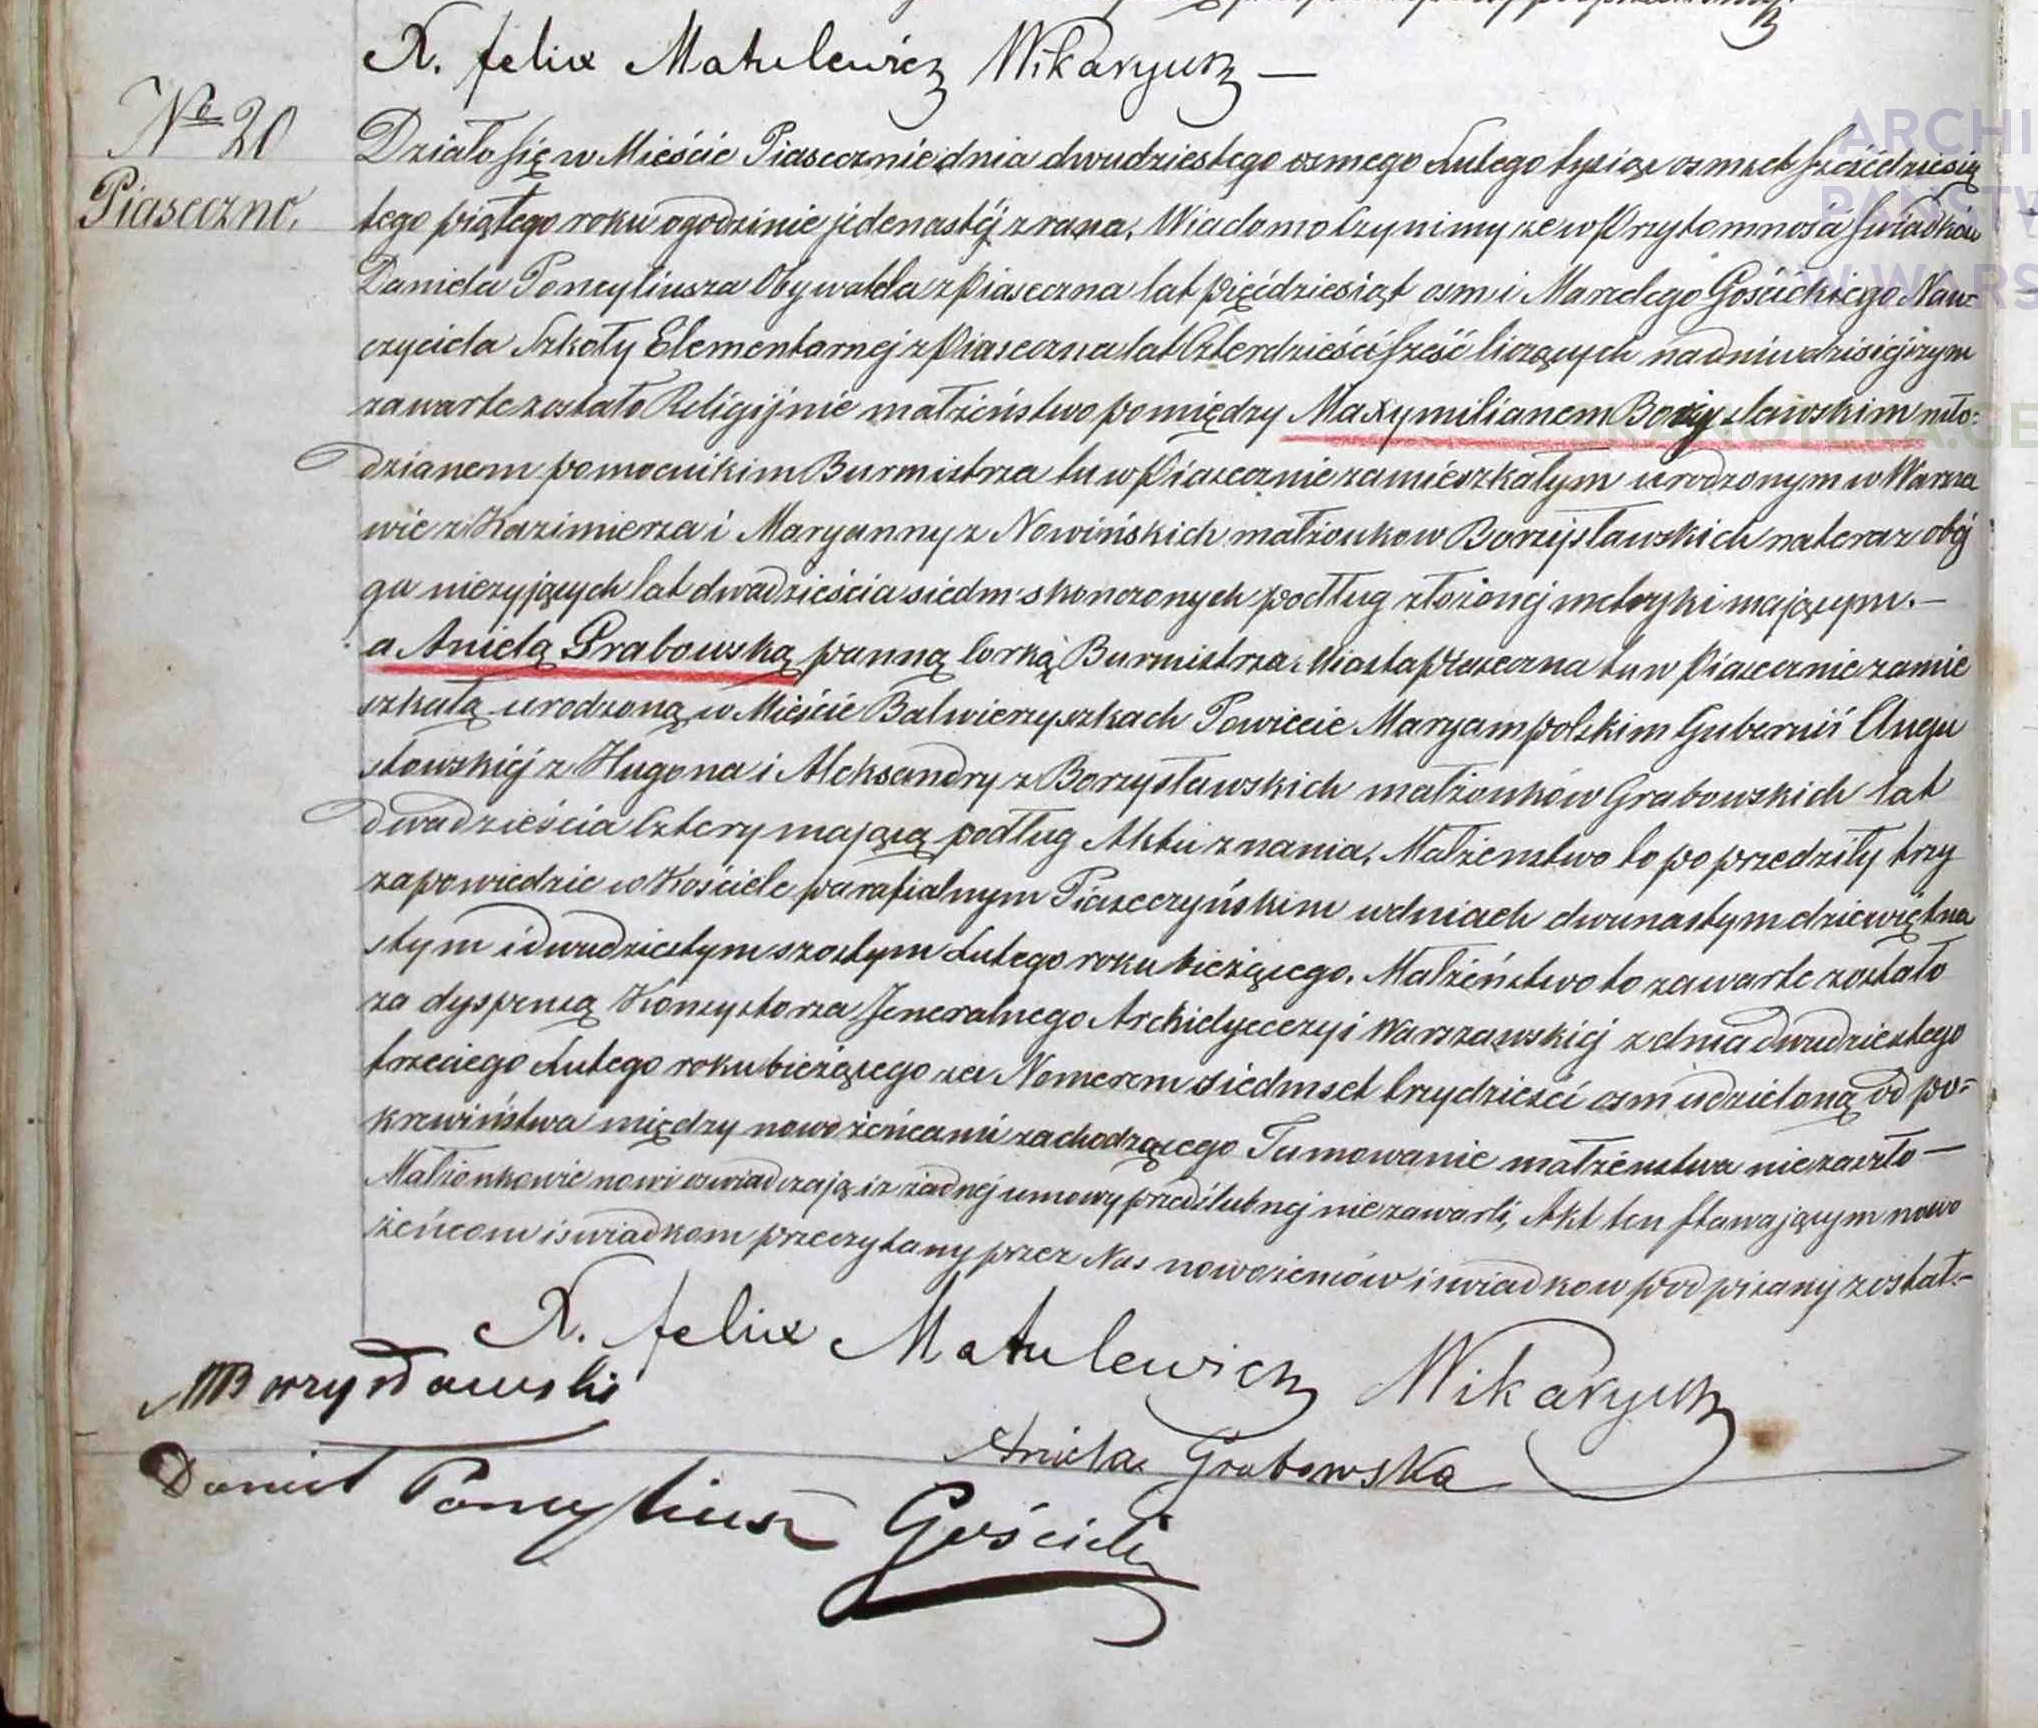 X. Felix Matulewicz Wikaryusz —
No 20
Piaseczno.
Działo się w Mieście Piasecznie dnia dwudziestego osmego Lutego tysiąc osmset sześćdziesią
tego piątego roku o godzinie jedenastéj z rana. Wiadomo Czynimy że w Przytomności świadków
Daniela Poncyliusza Obywatela z Piaseczna lat pięćdziesiąt osm i Marcelego Gościckiego Nau=
czyciela Szkoły Elementarnej z Piaseczna lat Czterdzieści sześć liczących na dniu dzisiejszym
zawarte zostało Religijnie małżeństwo pomiędzy Maxymilianem Borzysławskim mło=
dzianem pomocnikim Burmistrza tu w Piasecznie zamieszkałym urodzonym w Warsza
wie z Kazimierza i Maryanny z Nowińskich małżonkow Borzysławskich na teraz obój
gu nieżyjących lat dwadzieścia siedm skończonych podług złożonej metryki mającym. —
a Anielą Grabowską panną Corką Burmistrza Miasta Piaseczna tu w Piasecznie zamie
szkałą urodzoną w Mieście Balwierzyszkach Powiecie Maryampolskim Gubernii Augu
stowskiéj z Hugona i Aleksandry z Borzysławskich małżonków Grabowskich lat
dwadzieścia Cztery mającą podług Aktu znania. Małżenstwo to poprzedziły trzy
zapowiedzie w Kościele parafialnym Piaseczyńskim w dniach dwunastym dziewiętna
stym i dwudziestym szostym Lutego roku bieżącego. Małżeństwo to zawarte zostało
za dyspensą Konsystorza Jeneralnego Archidyecezyi Warszawskiej z dnia dwudziestego
trzeciego Lutego roku bieżącego za Nomerem siedmset trzydzieści osm udzieloną od po=
krewiństwa między nowożeńcami zachodzącego Tamowanie małżenstwa nie zaszło —
Małżonkowie nowi oswiadczają iż żadnej umowy przedślubnej nie zawarli, Akt ten stawającym nowo
żeńcom i swiadkom przeczytany przez Nas nowożencow i swiadkow podpisany został. —
X. Felix Matulewicz Wikaryusz
M Borzysławski
Aniela Grabowska
Daniel Poncyliusz Gościcki
ARCHI
PAŃSTW
W WARS